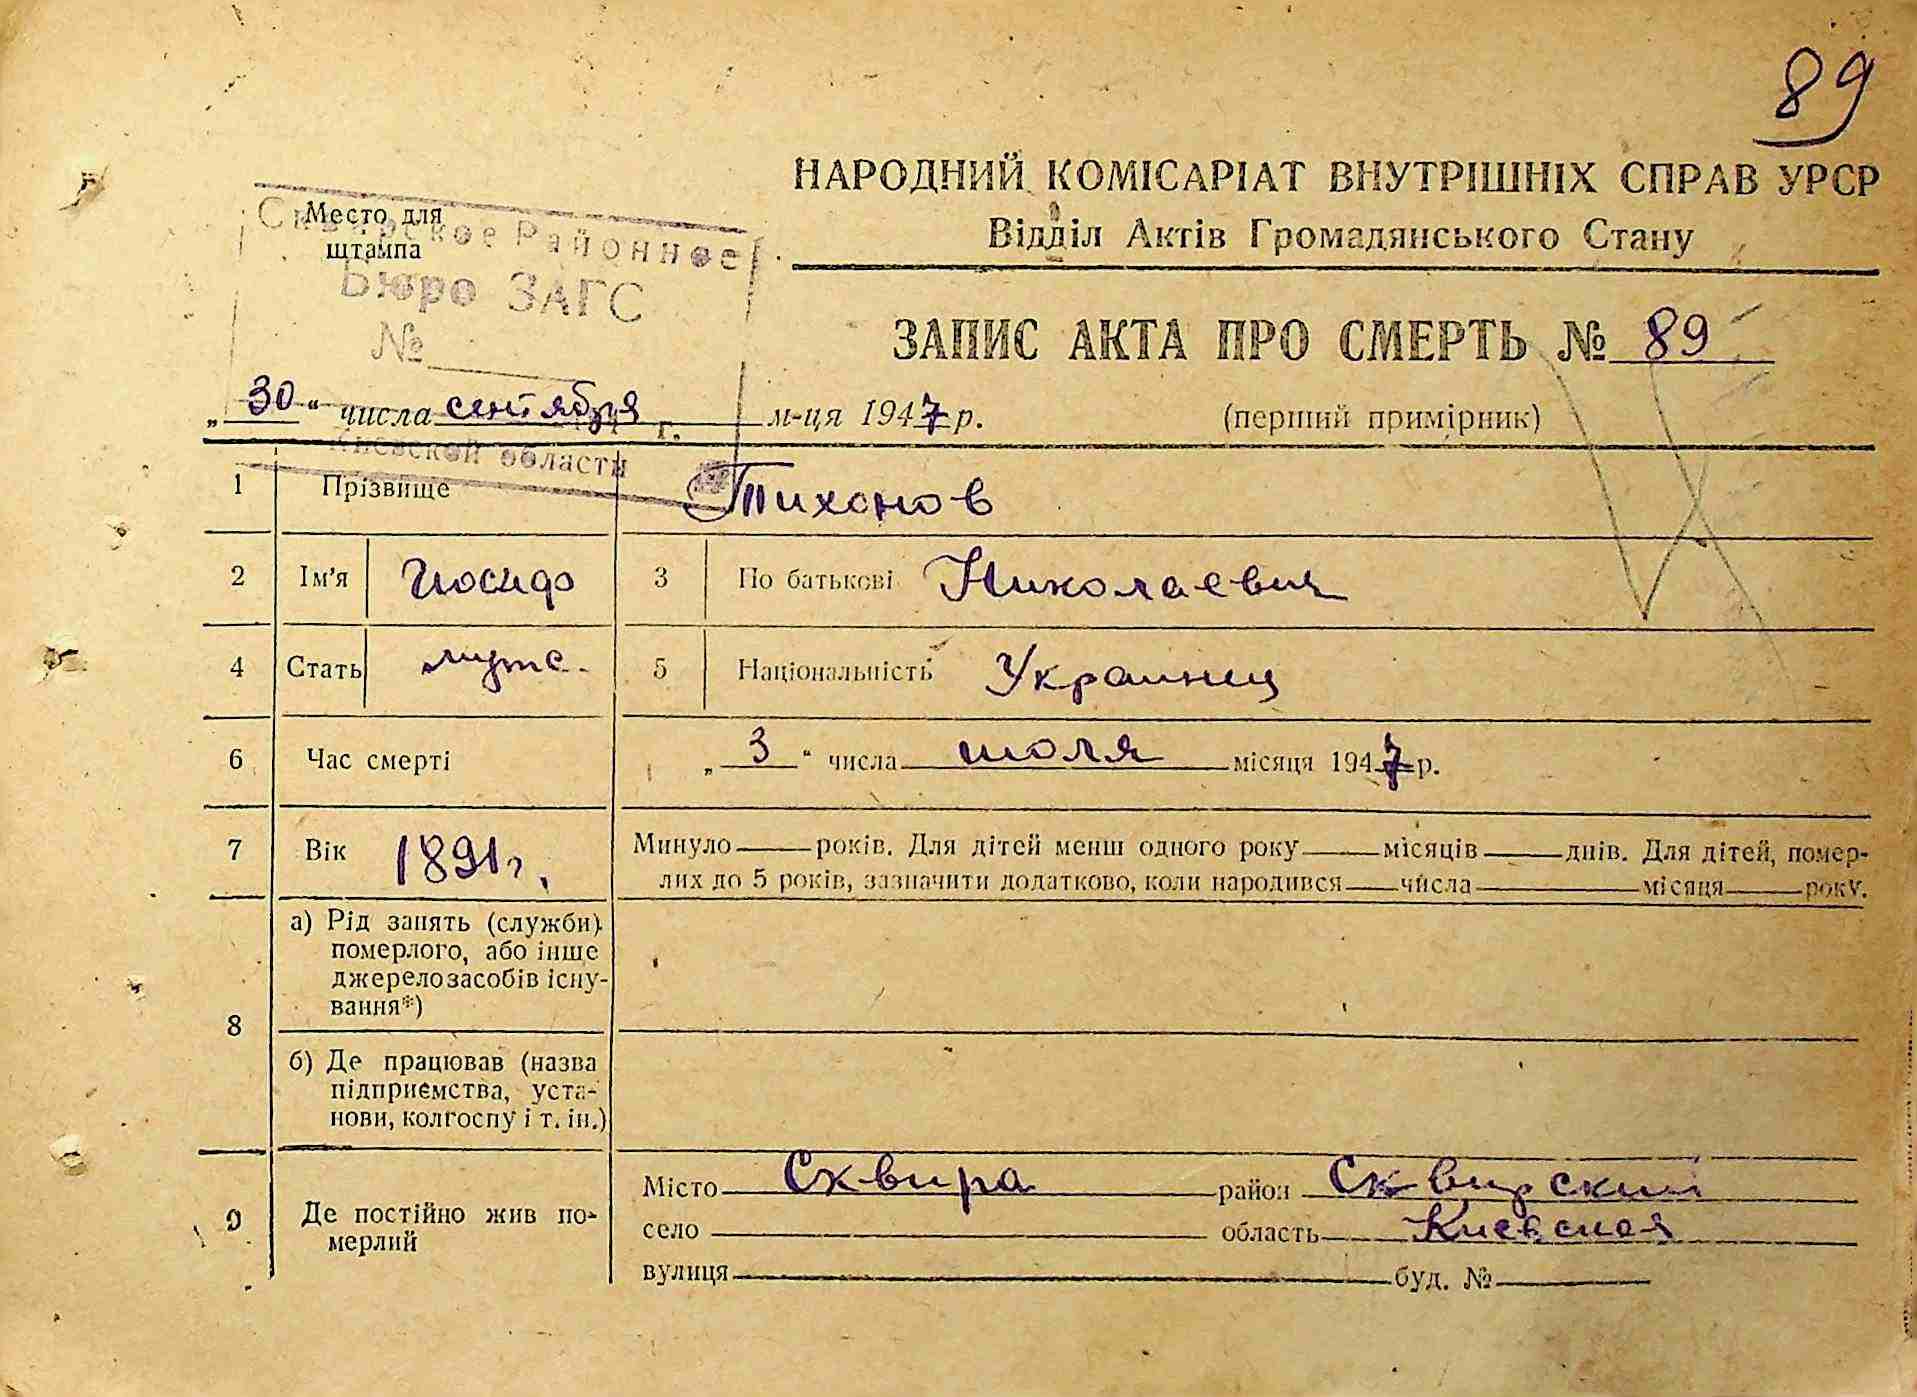 89
НАРОДНИЙ КОМІСАРІАТ ВНУТРІШНІХ СПРАВ УРСР
Відділ Актів Громадянського Стану
Место для
штампа
Сквирское Районное
Бюро ЗАГС
№
Киевской области
ЗАПИС АКТА ПРО СМЕРТЬ № 89
„30“ числа сентября м-ця 1947 р.
(перший примірник)
1 Прізвище Тихонов
2 Ім'я Иосиф 3 По батькові Николаевич
4 Стать муж. 5 Національність Украинец
6 Час смерті „3“ числа июля місяця 1947 р.
7 Вік 1891 г. Минуло років. Для дітей менш одного року місяців днів. Для дітей, помер-
лих до 5 років, зазначити додатково, коли народився числа місяця року.
8
а) Рід занять (служби)
померлого, або інше
джерело засобів існу-
вання*)
б) Де працював (назва
підприємства, уста-
нови, колгоспу і т. ін.)
9 Де постійно жив по-
мерлий
Місто Сквира район Сквирский
село область Киевская
вулиця буд. №